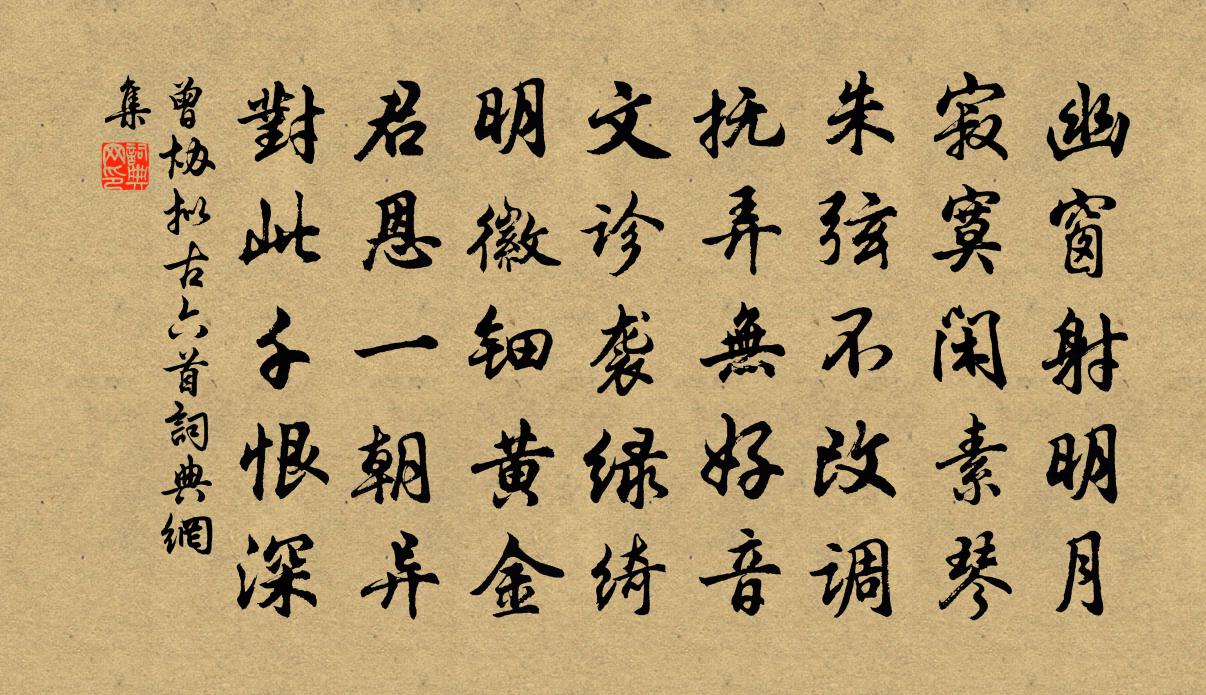 幽窗射明月
寂寞闲素琴
朱弦不改调
抚弄無好音
文诊袭绿绮
明徽钿黄金
君恩一朝异
對此千恨深
曾协拟古六首詞典網
集
詞典网印